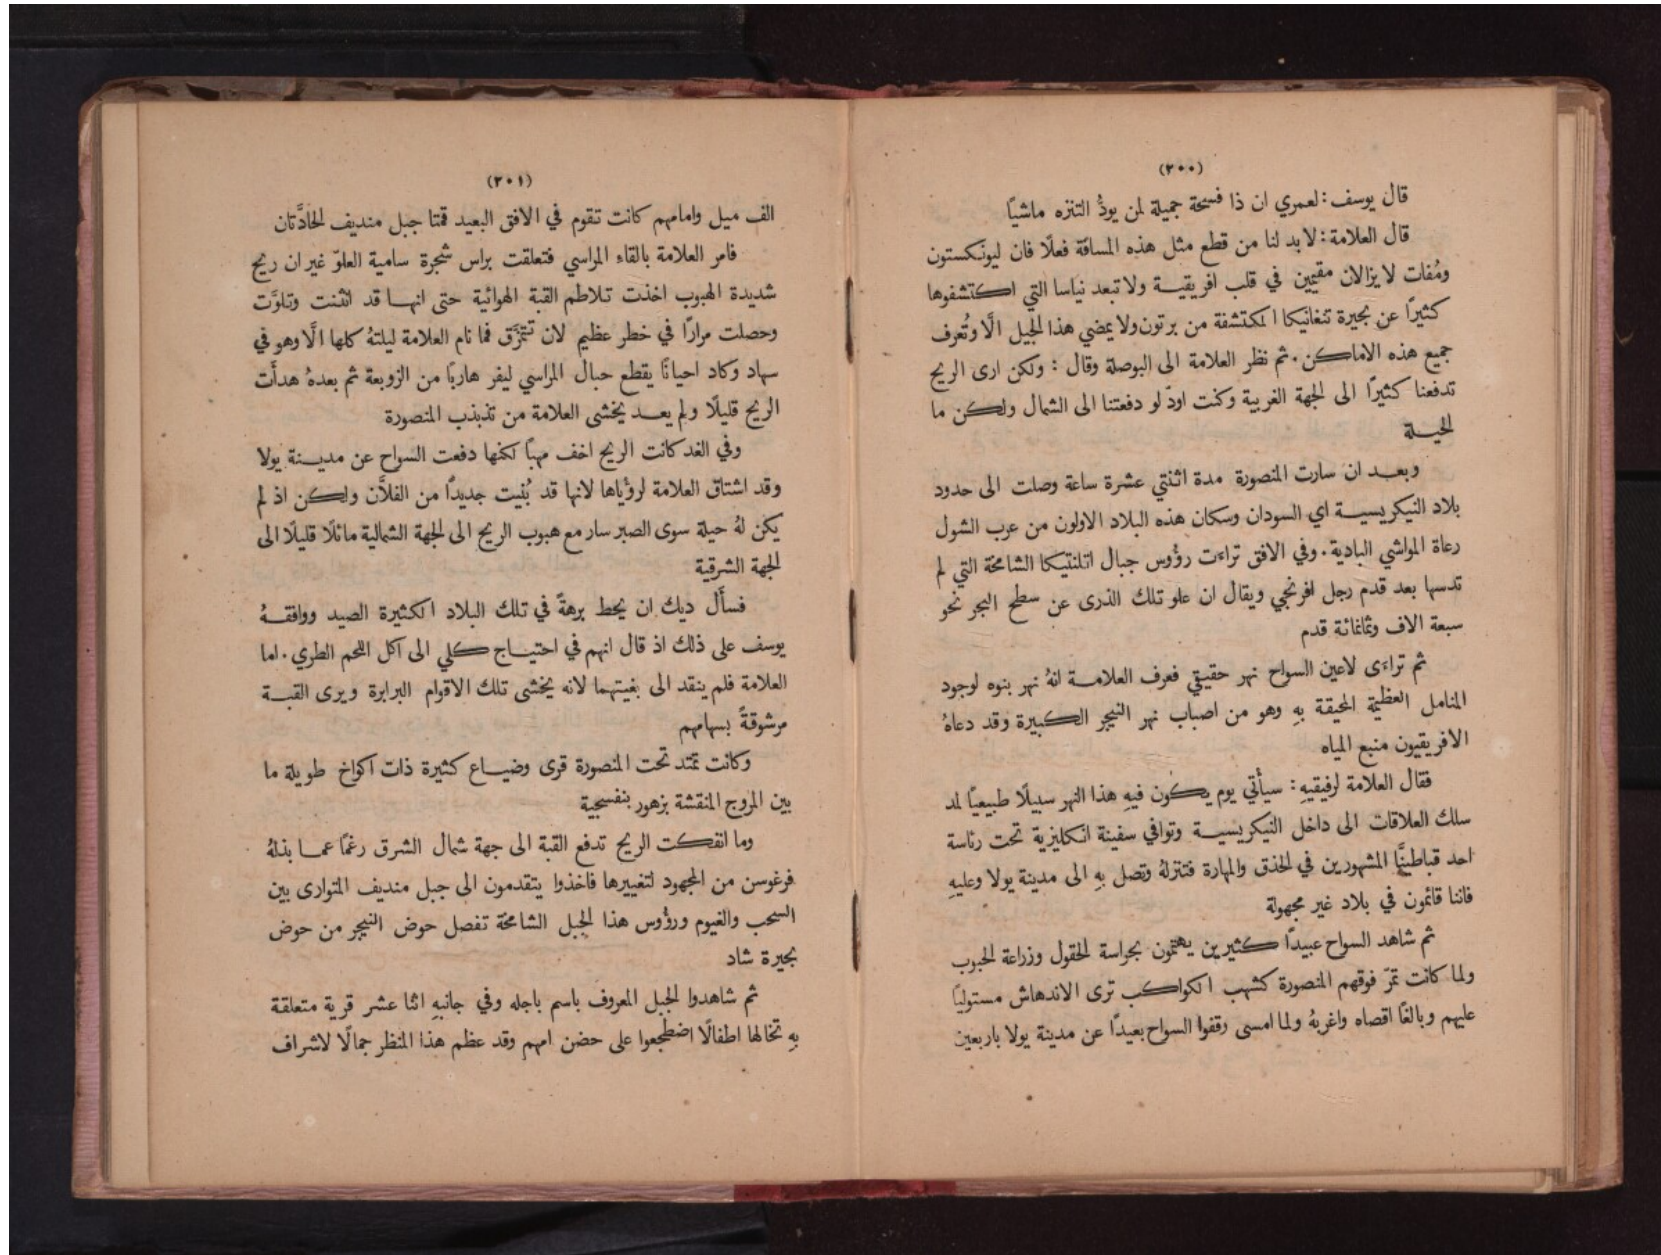 (٢٠٠)
قال يوسف: لعمري ان ذا فسحة جميلة لمن يودُّ التنزه ماشيًا
قال العلامة: لا بد لنا من قطع مثل هذه المسافة فعلًا فان ليونكستون
ومُفات لا يزالان مقيمين في قلب افريقية ولا تبعد نياسا التي اكتشفوها
كثيرًا عن بحيرة تنغانيكا المكتشفة من برتون ولا يمضي هذا الجيل الَّا وتُعرف
جميع هذه الاماكن. ثم نظر العلامة الى البوصلة وقال: ولكن ارى الريح
تدفعنا كثيرًا الى الجهة الغربية وكنت اودّ لو دفعتنا الى الشمال ولكن ما
الحيلة
وبعد ان سارت المنصورة مدة اثنتي عشرة ساعة وصلت الى حدود
بلاد النيكريسية اي السودان وسكان هذه البلاد الاولون من عرب الشول
رعاة المواشي البادية. وفي الافق تراءت رؤوس جبال اتلنتيكا الشامخة التي لم
تدسها بعد قدم رجل افرنجي ويقال ان علو تلك الذرى عن سطح البحر نحو
سبعة الاف وثمانمائة قدم
ثم تراءى لاعين السواح نهر حقيقي فعرف العلامة انهُ نهر بنوه لوجود
المنامل العظيمة المحيقة بهِ وهو من اصباب نهر النيجر الكبيرة وقد دعاهُ
الافريقيون منبع المياه
فقال العلامة لرفيقيهِ: سيأتي يوم يكون فيهِ هذا النهر سبيلًا طبيعيًا لمد
سلك العلاقات الى داخل النيكريسية وتوافي سفينة انكليزية تحت رئاسة
احد قباطينَّا المشهورين في الحذق والمهارة فتنزلهُ وتصل بهِ الى مدينة يولا وعليهِ
فاننا قائمون في بلاد غير مجهولة
ثم شاهد السواح عبيدًا كثيرين يهتمون بحراسة الحقول وزراعة الحبوب
ولما كانت تمرّ فوقهم المنصورة كشهب الكواكب ترى الاندهاش مستوليًا
عليهم وبالغًا اقصاه واغربهُ ولما امسى رقفوا السواح بعيدًا عن مدينة يولا باربعين
(٢٠١)
الف ميل وامامهم كانت تقوم في الافق البعيد قمتا جبل منديف الحادَّتان
فامر العلامة بالقاء المراسي فتعلقت براس شجرة سامية العلوّ غير ان ريح
شديدة الهبوب اخذت تلاطم القبة الهوائية حتى انها قد انثنت وتلوَّت
وحصلت مرارًا في خطر عظيم لان تتمزَّق فما نام العلامة ليلتهُ كلها الَّا وهو في
سهاد وكاد احيانًا يقطع حبال المراسي ليفر هاربًا من الزوبعة ثم بعدهُ هدأَت
الريح قليلًا ولم يعد يخشى العلامة من تذبذب المنصورة
وفي الغد كانت الريح اخف مهبًا لكنها دفعت السواح عن مدينة يولا
وقد اشتاق العلامة لرؤياها لانها قد بُنيت جديدًا من الفلاَّن ولكن اذ لم
يكن لهُ حيلة سوى الصبر سار مع هبوب الريح الى الجهة الشمالية مائلًا قليلًا الى
الجهة الشرقية
فسأَل ديك ان يحط برهةً في تلك البلاد الكثيرة الصيد ووافقهُ
يوسف على ذلك اذ قال انهم في احتياج كلي الى اكل اللحم الطري. اما
العلامة فلم ينقد الى بغيتهما لانه يخشى تلك الاقوام البرابرة ويرى القبة
مرشوقةً بسهامهم
وكانت تمتد تحت المنصورة قرى وضياع كثيرة ذات اكواخ طويلة ما
بين المروج المنقشة بزهور بنفسجية
وما انفكت الريح تدفع القبة الى جهة شمال الشرق رغمًا عما بذلهُ
فرغوسن من المجهود لتغييرها فاخذوا يتقدمون الى جبل منديف المتوارى بين
السحب والغيوم ورؤوس هذا الجبل الشامخة تفصل حوض النيجر من حوض
بحيرة شاد
ثم شاهدوا الجبل المعروف باسم باجله وفي جانبهِ اثنا عشر قرية متعلقة
بهِ تخالها اطفالًا اضطجعوا على حضن امهم وقد عظم هذا المنظر جمالًا لاشراف